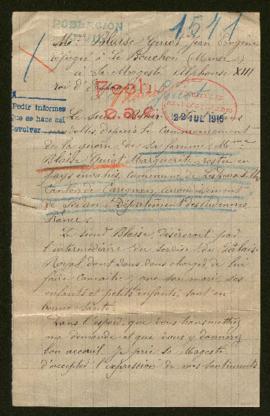 POBLACION
CIVIL
1541
Mr Blaise Guiot Jean Eugène
réfugié à Le Bouchon (Meuse)
à Sa Majesté Alphonse XIII
roi d'Espagne
Pedir informes
que se hace así
22 JUL 1916
Le sieur Blaise
nouvelles depuis le commencement
de la guerre de sa femme Mme
Blaise Guiot Marguerite restée en
pays envahis, commune de
canton de Carignan, arrondissement
de Sedan, Département des Ardennes
France
Le sieur Blaise désirerait par
l'intermédiaire du service du Palais
Royal dont vous êtes chargé de lui
faire connaître que son mari, ses
enfants et petits enfants, sont en
bonne santé.
Dans l'espoir que vous transmettrez
ma demande et que vous y donnerez
bon accueil. Je prie sa Majesté
d'accepter l'expression de mes sentiments